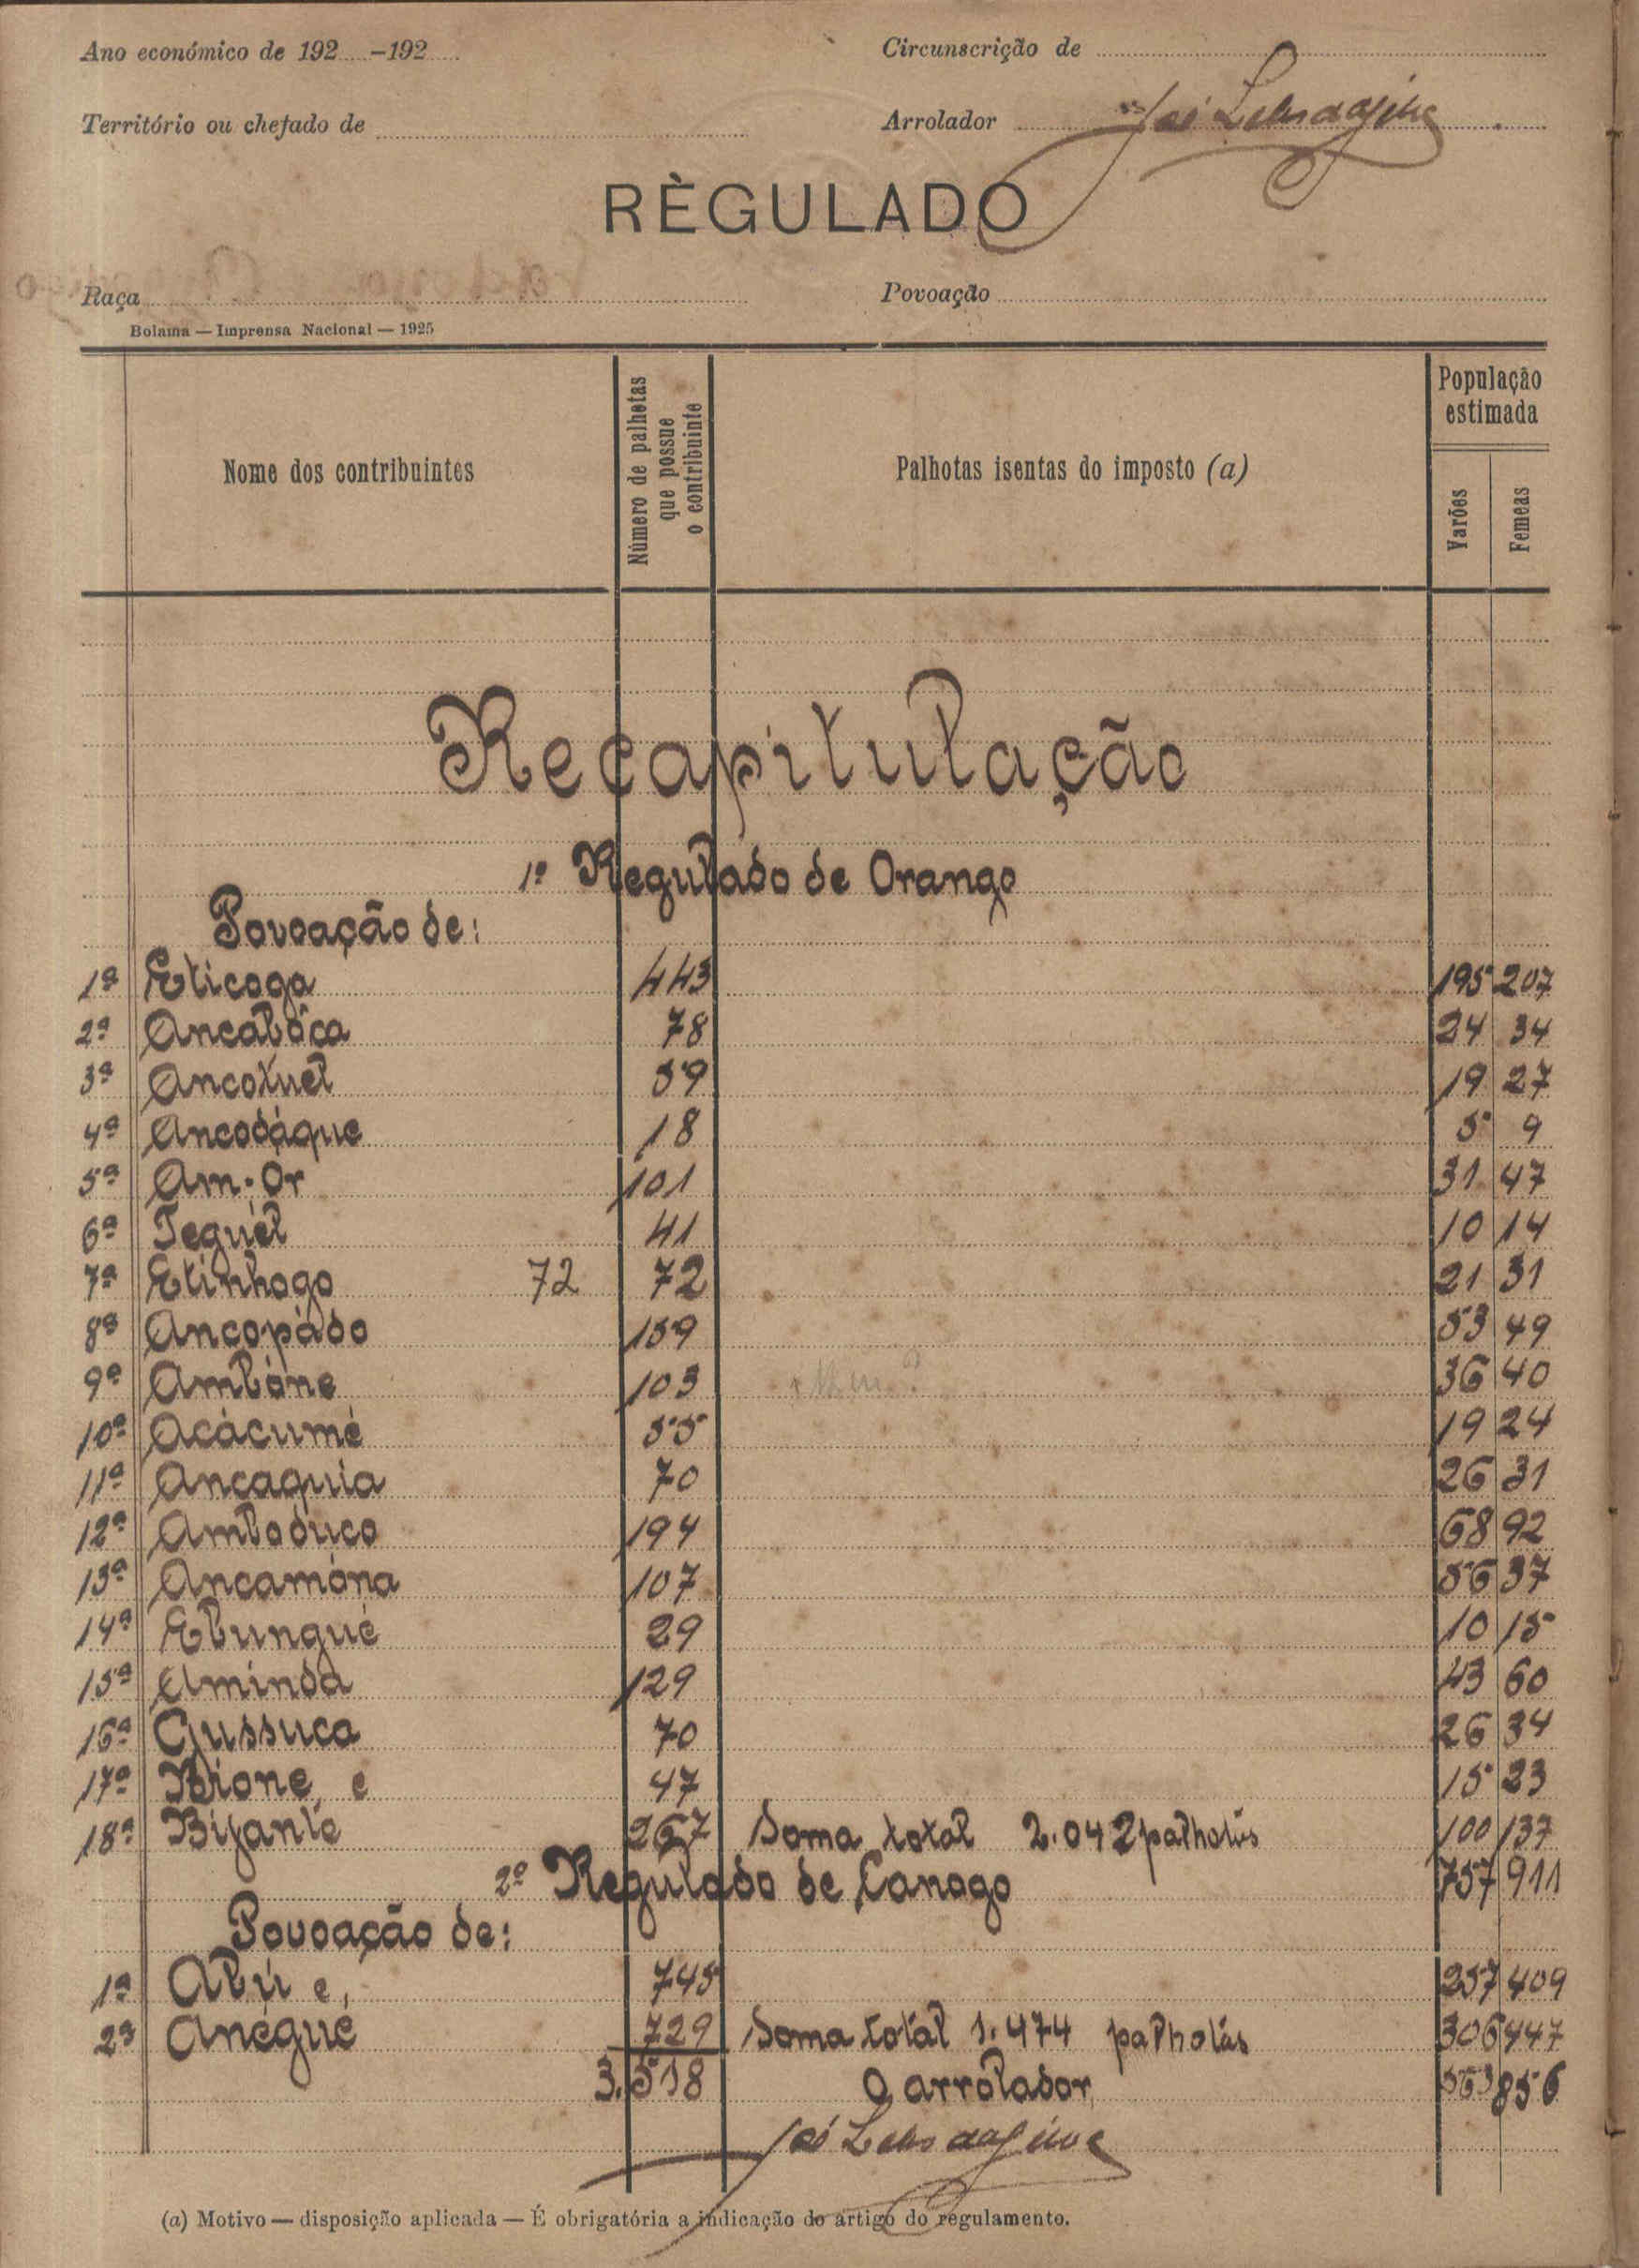 Ano económico de 192 -192
Circunscrição de
Território ou chefado de
Arrolador José
RÈGULADO
Raça
Povoação
Bolama — Imprensa Nacional — 1925
Nome dos contribuintes
Número de palhotas que possue o contribuinte
Palhotas isentas do imposto (a)
População estimada
Varões
Femeas
Recapitulação
1º Regulado de Orango
Povoação de:
1ª Eticoga 443 195 207
2ª Ancabóca 78 24 34
3ª Ancoxuel 59 19 27
4ª Ancodáque 18 5 9
5ª Am-Or 101 31 47
6ª Teguiel 41 10 14
7ª Etinhogo 72 72 21 31
8ª Ancopádo 159 53 49
9ª Ambóne 103 36 40
10ª Acácumé 55 19 24
11ª Ancaguia 70 26 31
12ª Amboduco 194 68 92
13ª Ancamóna 107 56 37
14ª Ebungué 29 10 15
15ª Uminda 129 43 60
16ª Gussuca 70 26 34
17ª Bione, e 47 15 23
18ª Bijante 267 Soma total 2.042 palhotas 100 137
2º Regulado de Canogo 757 911
Povoação de:
1ª Abú e, 745 257 409
2ª Anégué 729 Soma total 1.474 palhotas 306 447
3.518 O arrolador, 563 856
José
(a) Motivo — disposição aplicada — É obrigatória a indicação do artigo do regulamento.